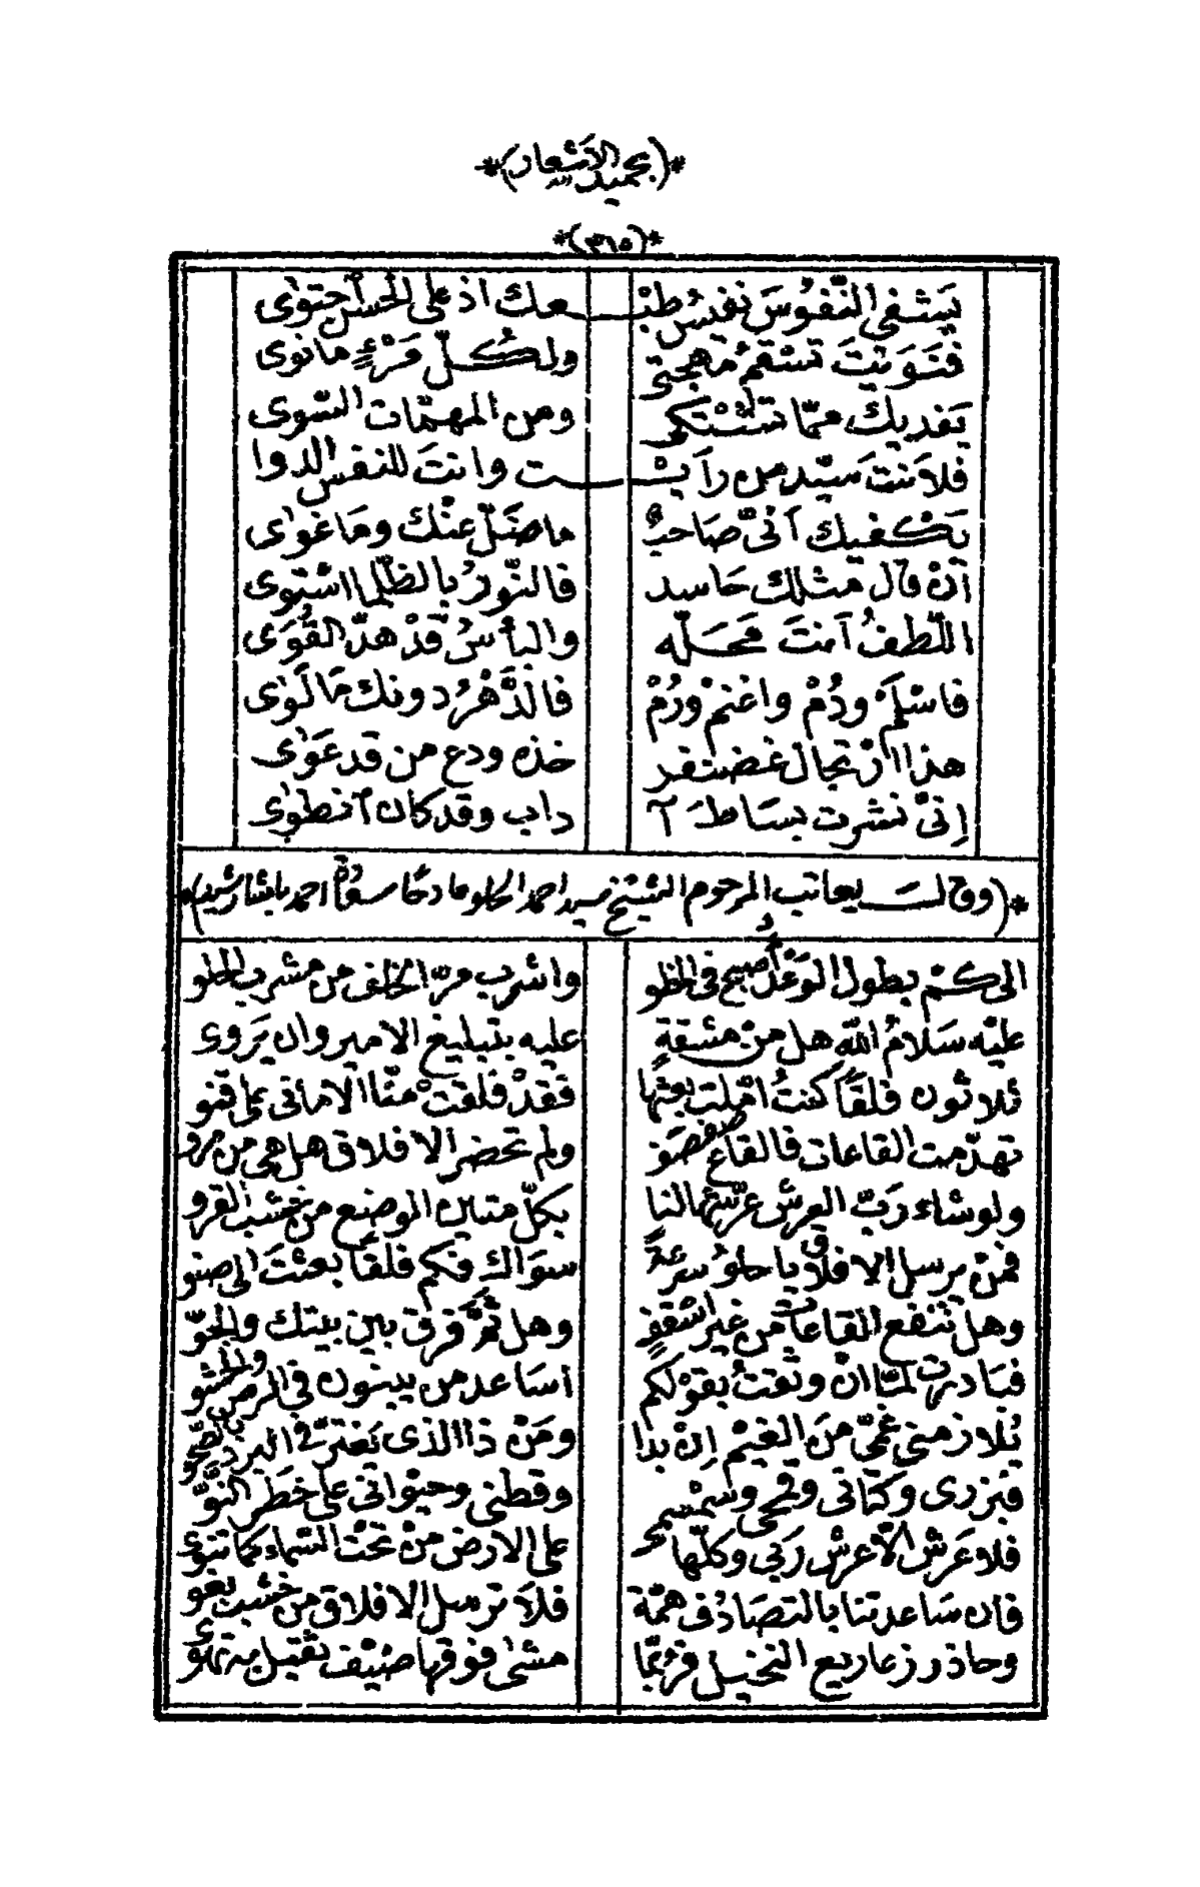 *(بحميد الأشعار)*
*(٣٦٥)*
يَشفى النّفوسَ نفيسُ طبْـ ـعك اذ على الحُسن أحتوٰى
فنَوَيتَ تسقم مهجتى ولكُلّ مَرْءٍ مانوى
يَفديك ممّا تشتكى ومن المهمّات السّوى
فلأنتَ سيّد من رأيْـ ـت وانتَ للنفس الدوا
يَكفيك أنّى صَاحبٌ ماضَلّ عنْك ومَا غوٰى
أنْ قال مثلك حَاسد فالنّورُ بالظّلما استوى
اللّطفُ أنتَ مَحَلّه والبأسُ قدْ هدّ القُوَى
فاسْلَمْ ودُمْ واغنمْ ورُمْ فالدَّهْرُ دونك مَا لَوٰى
هذا ارْتجال غضنفر خذه ودع من قد عَوٰى
اِنّى نشرت بسَاط آ داب وقد كان أنطوٰى
*(وقال يعاتب المرحوم الشيخ سيد احمد الحلو مادحًا سعادة احمد باشا رشيد)*
الى كمْ بطول الوَعْد أصبح فى الظو واشرب مرّ الخلف من مشرب الحلو
عليْه سَلامُ اللّه هل منْ مشقةٍ عليه بتبليغ الامير وان يَروى
ثلاثون فلقًا كنتُ امّلت بعثها فَقدْ فلقتْ منّا الامانى بما تنو
تهدّمت القاعات فالقاع صفصَف ولم تحضر الافلاق هل هى من مرو
ولو شاء رَبّ العرش عرّشها لنا بكلّ متين الوضع من خشب القرو
فمنْ يرسل الافلاق ياحلوُ سرعةً سوَاك فكم فلقًا بعثتَ الى صنو
وهل تنفع القاعات من غير اسْقفٍ وهل ثمّ فرق بين بيتك والجوّ
فبَادرت لمّا انْ وثقتُ بقولكم أسَاعد من يبنون فى الرص والحشو
يُلازمنى غمّى منَ الغيْم اِنْ بدا ومَنْ ذا الذى يَغترّ فى البرد بالصّحو
فبزرى وكتّانى وقمحى وسمْسمى وقطنى وحيوانى على خطر النّوّ
فلا عَرْش الّا عرْش رَبى وكلّها على الارض منْ تحْت السّماء كما تنوى
فان سَاعدتنا بالتصَادُف همّة فلاَ ترسل الافلاق من خشب بغو
وحاذر زعاريع النخيل فرُبّما مشى فوقها ضيْف ثقيل به تهوى